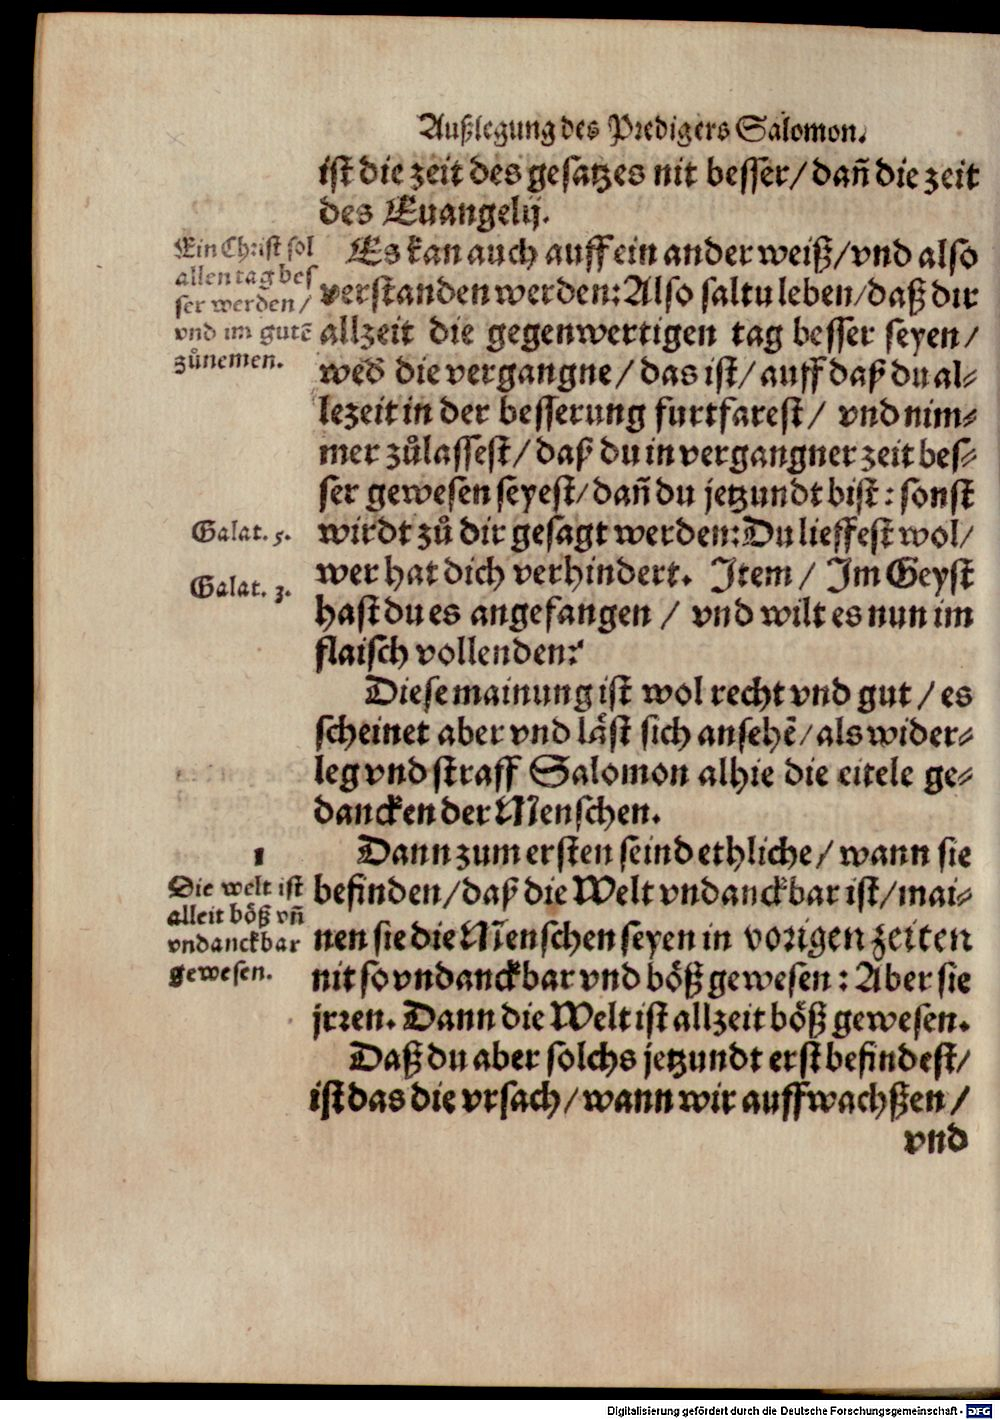 Außlegung des Predigers Salomon.
ist die zeit des gesatzes nit besser/ dañ die zeit
des Euangelij.
Ein Christ sol
allen tag bes
ser werden/
vnd im gutẽ
zůnemen.
Es kan auch auff ein ander weiß/ vnd also
verstanden werden: Also saltu leben/ daß dir
allzeit die gegenwertigen tag besser seyen/
wed die vergangne/ das ist/ auff daß du al-
lezeit in der besserung furtfarest/ vnd nim-
mer zůlassest/ daß du in vergangner zeit bes-
ser gewesen seyest/ dañ du jetzundt bist: sonst
Galat. 5.
wirdt zů dir gesagt werden: Du lieffest wol/
Galat. 3.
wer hat dich verhindert. Item/ Im Geyst
hast du es angefangen/ vnd wilt es nun im
flaisch vollenden?
Diese mainung ist wol recht vnd gut/ es
scheinet aber vnd låst sich ansehẽ/ als wider-
leg vnd straff Salomon alhie die eitele ge-
dancken der Menschen.
1
Die welt ist
alleit böß vñ
vndanckbar
gewesen.
Dann zum ersten seind ethliche/ wann sie
befinden/ daß die Welt vndanckbar ist/ mai-
nen sie die Menschen seyen in vorigen zeiten
nit so vndanckbar vnd böß gewesen: Aber sie
jrren. Dann die Welt ist allzeit böß gewesen.
Daß du aber solchs jetzundt erst befindest/
ist das die vrsach/ wann wir auffwachßen/
vnd
Digitalisierung gefördert durch die Deutsche Forschungsgemeinschaft - DFG